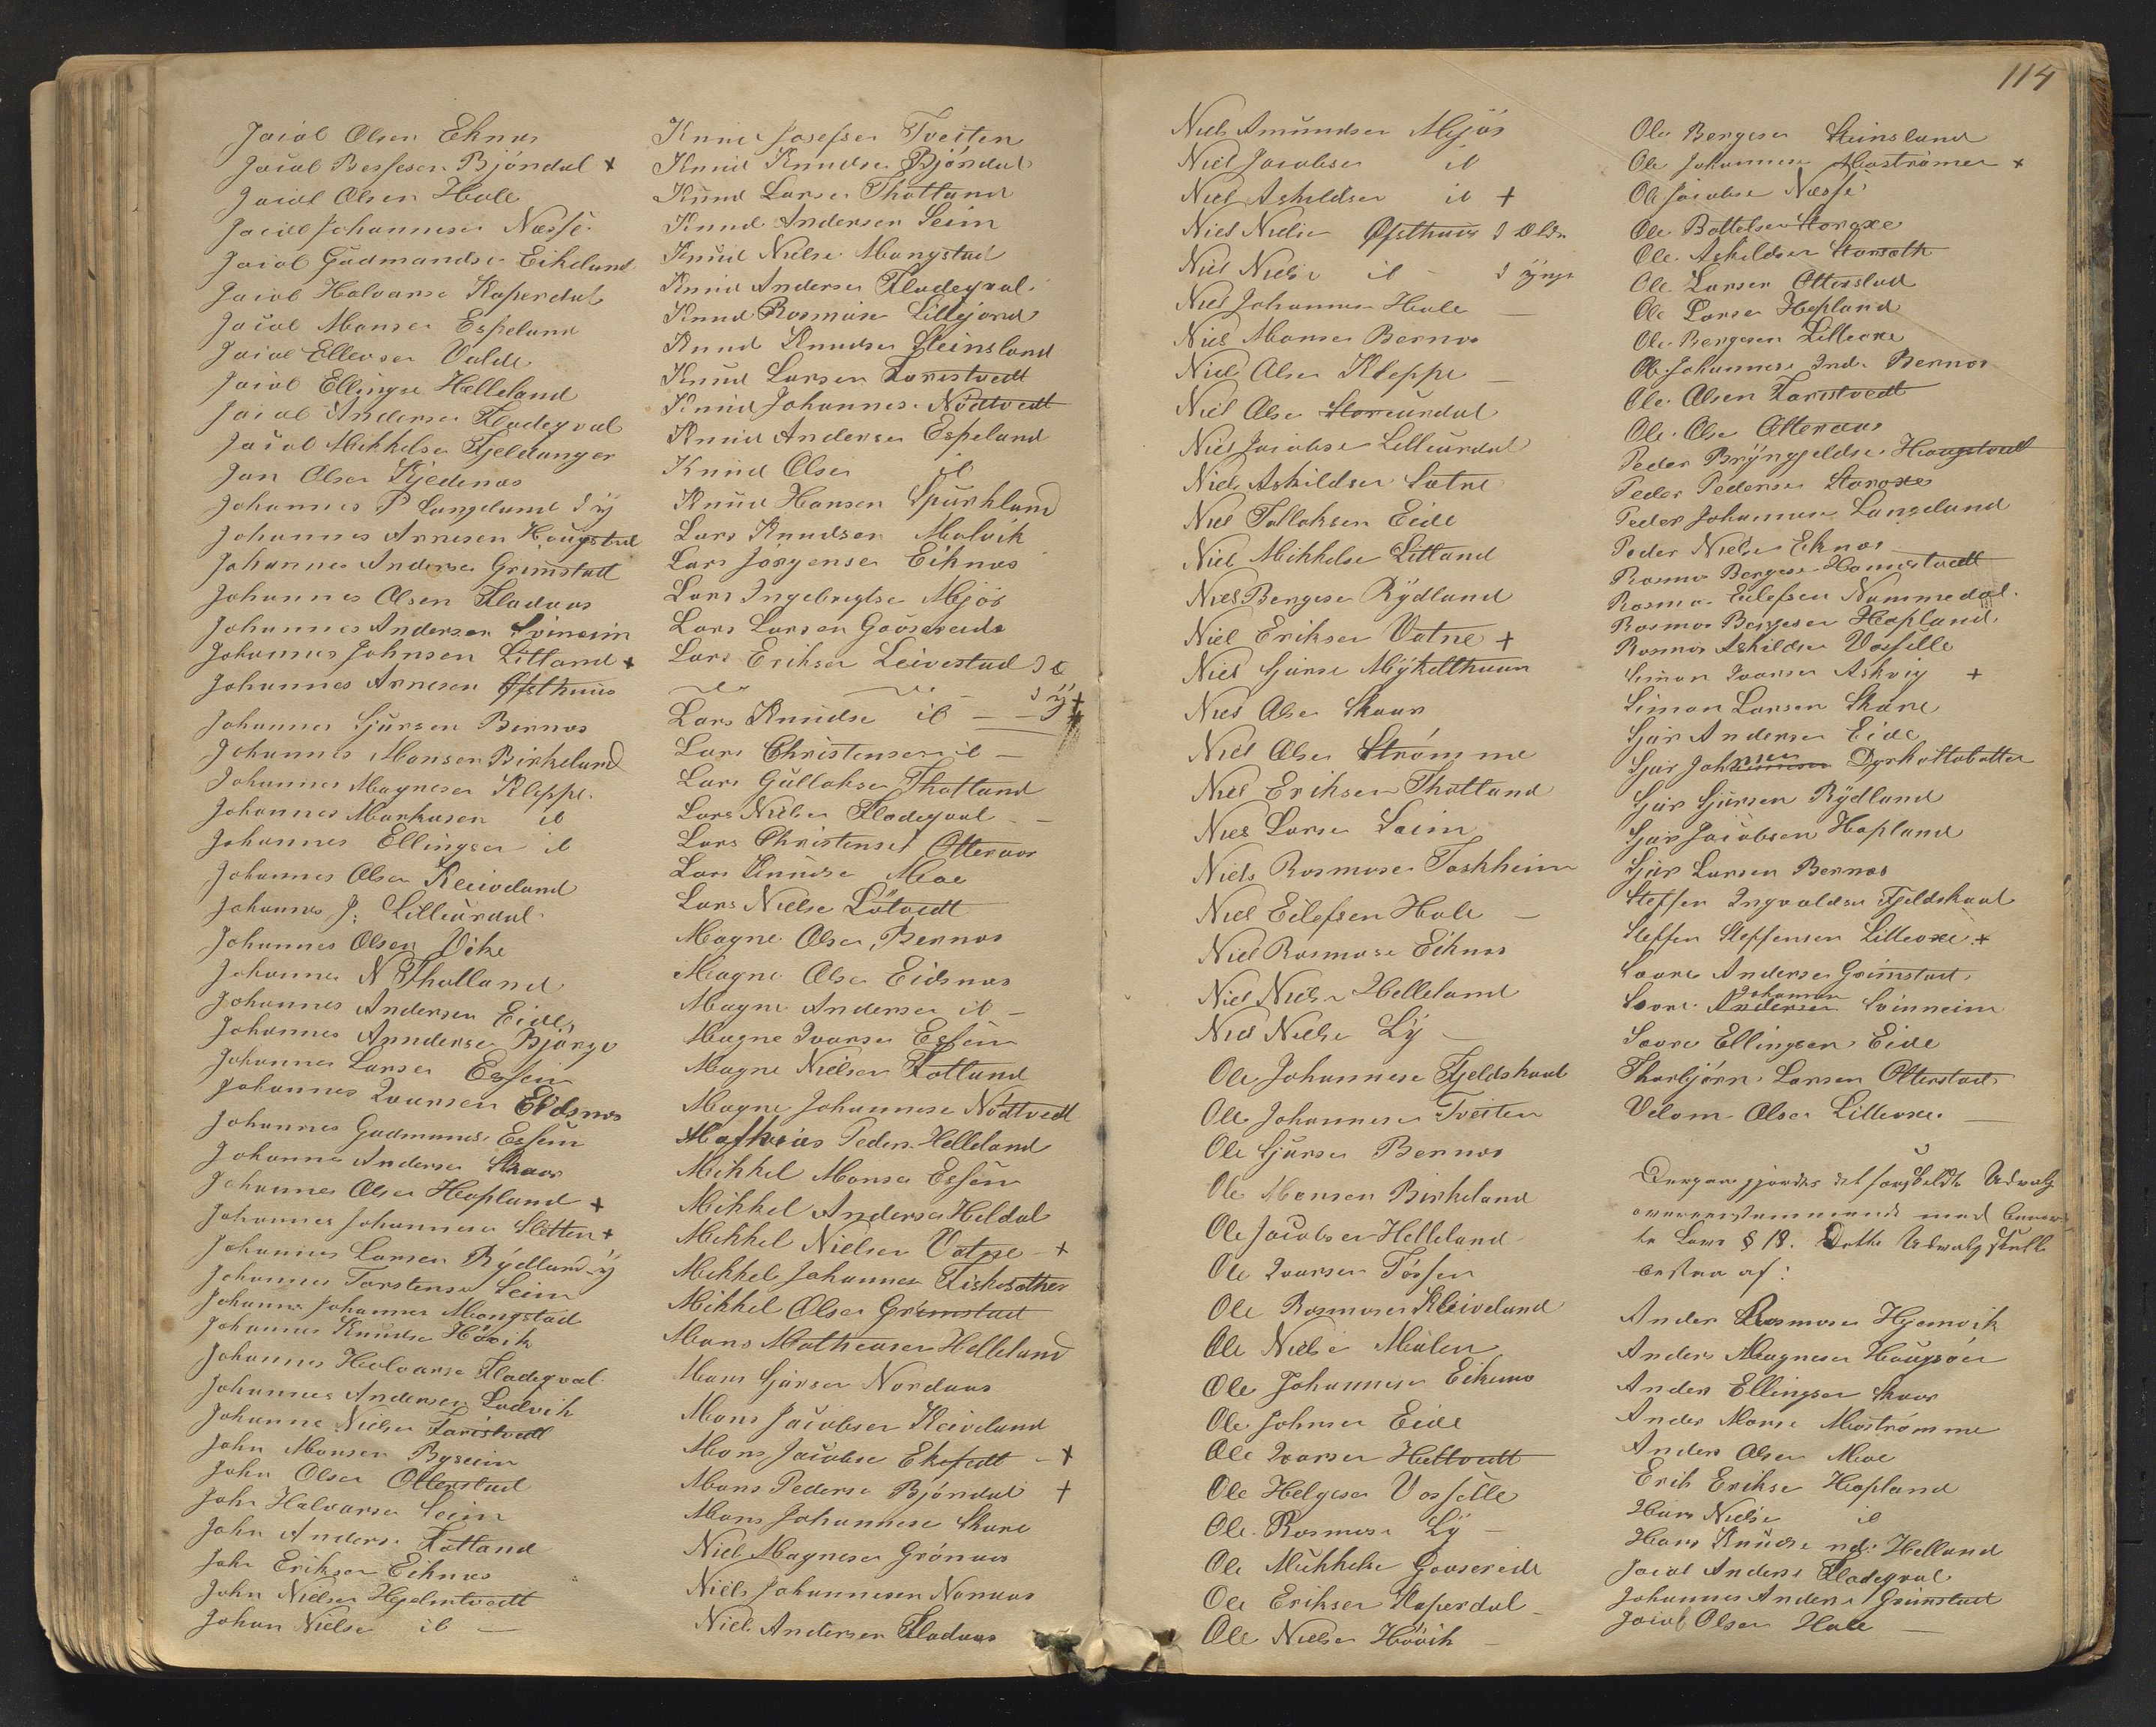 114
Jacob Olsen Eknes
Jacob Bessesen Bjöndal +
Jacob Olsen Hole
Jacob Johannesen Næsse
Jacob Gudmundse Eikeland
Jacob Halvorse Kaperdal
Jacob Monsen Espeland
Jacob Ellevsen Valde
Jacob Ellingse Helleland
Jacob Anderse Fladeqval
Jacob Mikkelse Fjeldanger
Jan Olsen Kjedenæs
Johannes P Langeland d y
Johannes Arnesen Hougstad
Johannes Anderse Grimstad
Johannes Olsen Fladaas
Johannes Andersen Svineim
Johannes Johnsen Litland +
Johannes Arnesen Øfsthuus
Johannes Sjursen Bernæs
Johannes Monsen Birkeland
Johannes Magnesen Kleppe
Johannes Markusen id
Johannes Ellingsen id
Johannes Olsen Kleiveland
Johannes J. Lilleurdal
Johannes Olsen Vike
Johannes N Tholland
Johannes Andersen Eide
Johannes Annderse Bjørge
Johannes Larsen Essem
Johannes Ivarsen Eidsnæs
Johannes Gudmunds. Essem
Johannes Anderse Skaar
Johannes Olsen Hopland +
Johannes Johannesen Sletten +
Johannes Larsen Rydland y
Johannes Torstense Seim
Johannes Johannes Mongstad
Johannes Knudse Høvik
Johannes Halvorse Fladeqval
Johannes Andersen Ladvik
Johanne Nielse Taristvedt
John Monsen Byseim
John Olsen Otterstad
John Halvorse Seim
John Anders. Totland
John Eriksen Eiknæs
John Nielsen Hjelmtvedt
Johan Nielse id —
Knud Josefsen Tveiten
Knud Knudse Bjöndal
Knud Larsen Thotland
Knud Andersen Seim
Knud Nielse Mongstad
Knud Andersen Fladeqval
Knud Rasmuse Lillejord
Knud Knudse Steinsland
Knud Larsen Taristvedt
Knud Johannes. Nödtvedt
Knud Andersen Espeland
Knud Olsen id
Knud Hansen Spurkland
Lars Knudsen Molvik
Lars Jörgense Eiknæs
Lars Ingebrigtse Mjøs
Lars Larsen Gaasereide
Lars Eriksen Leivestad d e
d y +
Lars Knudse id — —
Lars Christensen id —
Lars Gullakse Thotland
Lars Nielsen Fladeqval —
Lars Christense Otteraas
Lars Knudse Moe
Lars Nielse Lötvedt
Magne Olsen Bernæs
Magne Olse Eidsnæs
Magne Andersen id —
Magne Ivarse Essem
Magne Nielsen Totland
Magne Johannese Nödtvedt
Mathias Peders. Helleland
Mikkel Monsen Essem
Mikkel Anderse Heldal
Mikkel Nielsen Vatne — +
Mikkel Johannesen Fiskesæther
Mikkel Olsen Grimstad
Mons Matheusen Helleland
Mons Sjursen Nordaas
Mons Jacobsen Kleiveland
Mons Jacobse Ekefedt — +
Mons Pederse Bjöndal +
Mons Johannese Skare
Niels Magnesen Grönaas
Niels Johannesen Nonaas
Niels Andersen Fladaas
Niels Amundsen Mjös
Niels Jacobsen id
Niels Askildsen id +
Niels Nielse Øfsthuus d ældr
Niels Nielse id — d yngr
Niels Johannes Hole —
Niels Monse Bernæs
Niels Olsen Kleppe —
Niels Olse Storeurdal
Niels Jacobse Lilleurdal
Niels Askildsen Sætre
Niels Tollaksen Eide
Niels Mikkelse Litland
Niels Bergese Rydland
Niels Eriksen Vatne +
Niels Sjurse Mykelthuun
Niels Olse Skaar
Niels Olse Strömme
Niels Eriksen Thotland
Niels Larse Seim
Niels Rasmusen Foskheim
Niels Eilefsen Hole —
Niels Rasmuse Eiknæs
Niels Nielse Helleland
Niels Nielse Ly
Ole Johannese Fjeldskaal
Ole Johannesen Tveiten
Ole Sjursen Bernæs
Ole Monsen Birkeland
Ole Jacobsen Helleland
Ole Ivarsen Tössen
Ole Rasmusen Kleiveland
Ole Nielse Mulen
Ole Johannese Eiknæs
Ole Johnsen Eide
Ole Ivarsen Heltvedt
Ole Helgesen Vosselle
Ole Rasmuse Ly —
Ole Mikkelse Gaasereide
Ole Eriksen Kaperdal —
Ole Nielsen Høvik —
Ole Bergesen Steinsland
Ole Johannesen Mostrømmen +
Ole Jacobse Næsse
Ole Bottelsen Storoxe
Ole Askildsen Storsæth
Ole Larsen Otterstad
Ole Larsen Hopland
Ole Bergesen Lilleoxe
Ole Johannese Ind. Bernæs
Ole Olsen Taristvedt
Ole Olse Otteraas
Peder Bryngeldse Hougstvedt
Peder Pederse Storoxe
Peder Johannesen Langeland
Peder Nielse Eknæs
Rasmus Bergese Hannistvedt
Rasmus Eilefsen Nummedal
Rasmus Bergesen Hopland
Rasmus Askildse Vosselle
Simon Ivarsen Askvig +
Simon Larsen Skare
Sjur Andersen Eide
Sjur Johnsen Dyrkolbotten
Sjur Sjursen Rydland
Sjur Jacobsen Hopland
Sjur Larsen Bernæs
Steffen Ingvaldse Fjeldskaal
Steffen Steffensen Lilleoxe +
Saave Anderse Grimstad
Saave Johannes Svinneim
Saave Ellingsen Eide
Thorbjørn Larsen Otterstad
Velom Olsen Lilleoxe —
Derpaa gjordes det foreskildte Udvalg
overeensstemmende med bemeld-
te Lovs § 18. Dette Udvalg skulle
bestaa af:
Anders Rasmuse Hjemvik
Anders Magnesen Haugsöer
Anders Ellingsen Skaar
Anders Monse Mostrømme
Anders Olsen Moe
Erik Erikse Hopland
Hans Nielse id
Hans Knudse nd. Helland
Jacob Anderse Fladeqval
Johannes Anderse Grimstad
Jacob Olsen Hole —